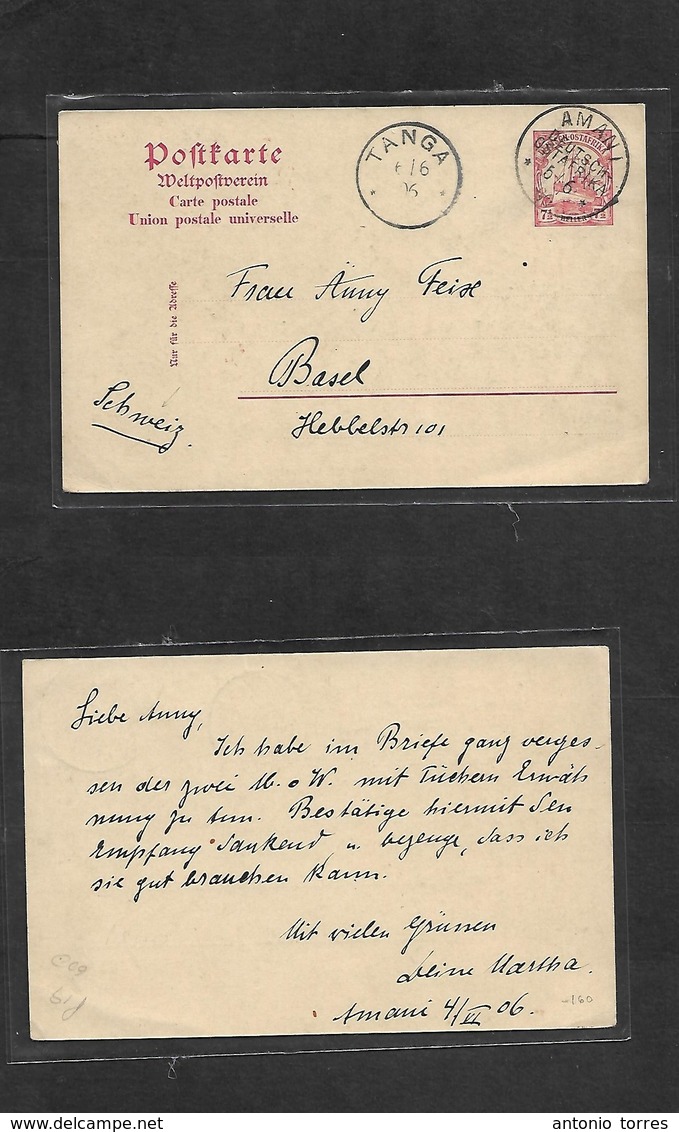 Postkarte
Weltpostverein
Carte postale
Union postale universelle
Nur für die Adresse
TANGA
6/6
06
AMANI
DEUTSCH-
OSTAFRIKA
5/6
DEUTSCH-OSTAFRIKA
7½ HELLER 7½
Frau Änny Feise
Basel
Hebbelstr 101
Schweiz
Liebe Anny,
Ich habe im Briefe ganz verges-
sen der zwei M. o W. mit Tüchern Erwäh
nung zu tun. Bestätige hiermit den
Empfang dankend u. bezeuge, dass ich
sie gut brauchen kann.
Mit vielen Grüssen
Deine Martha.
Amani 4/VI 06.
P19
-160
www.delcampe.net
antonio torres